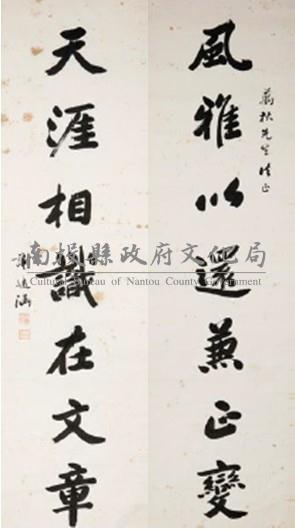 風雅以還兼正變
秋先生正
天涯相識在文章
南投縣政府文化局
Cultural Bureau of Nantou County Government